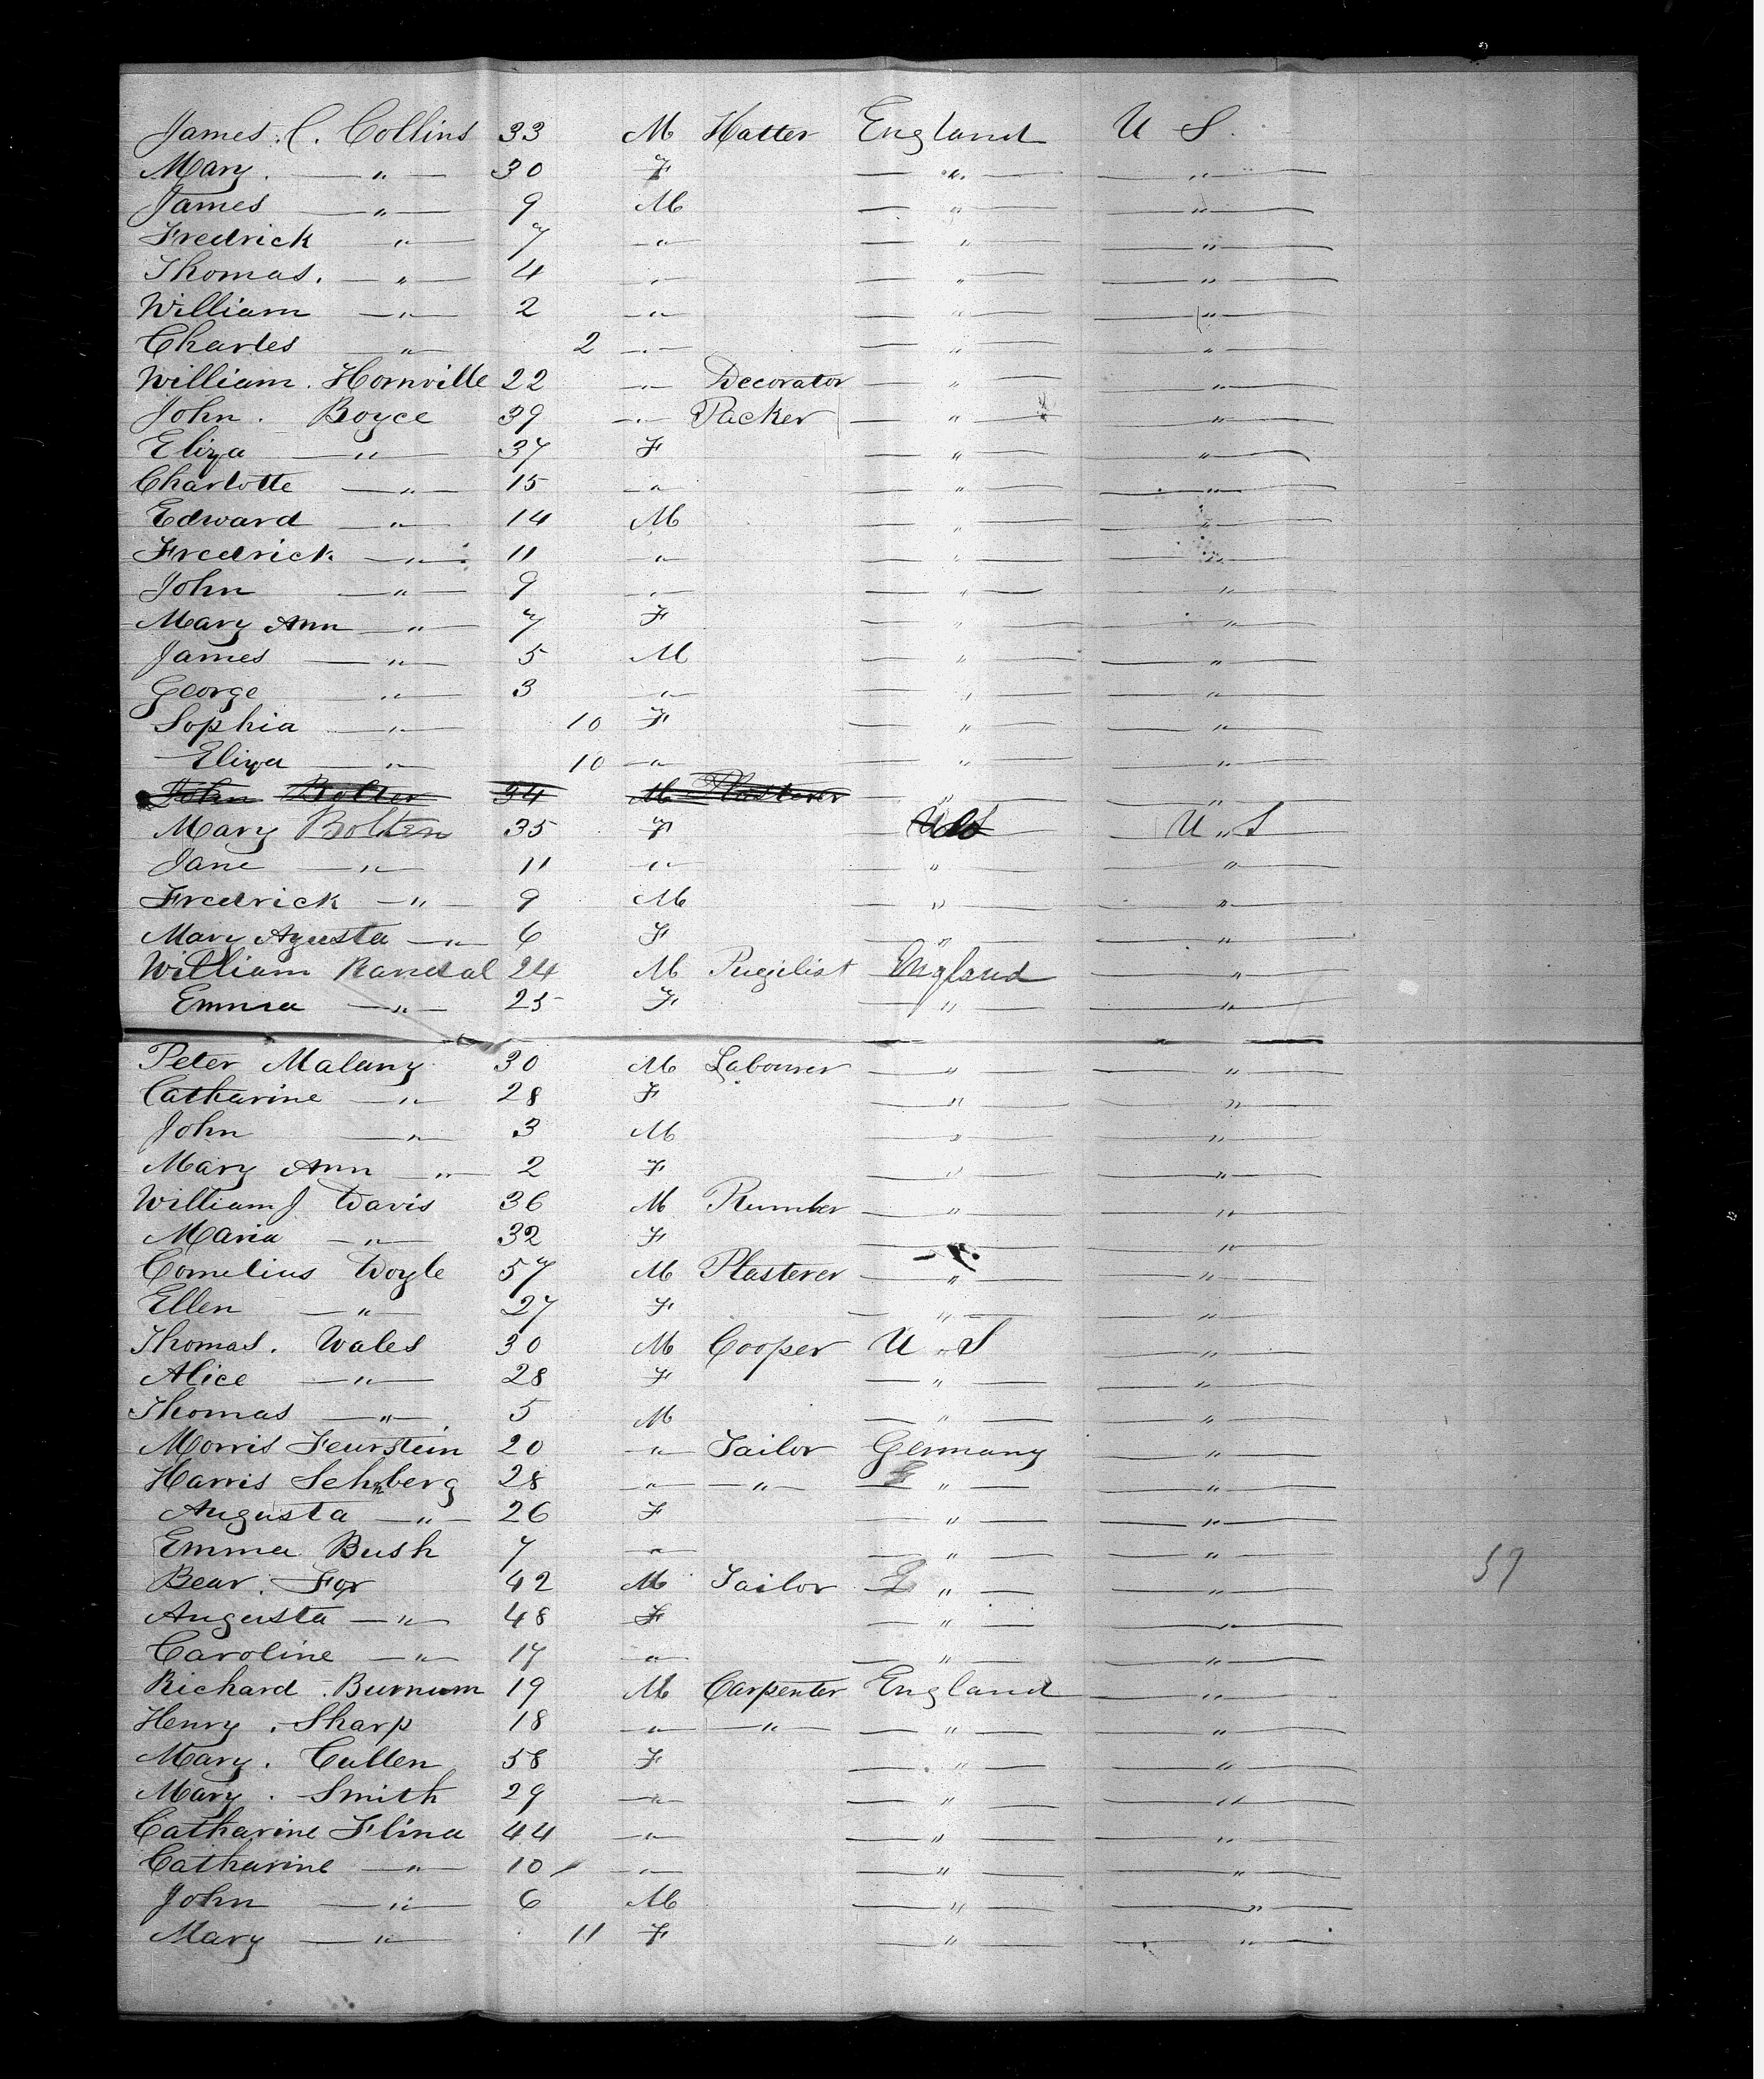 James C. Collins 33 M Hatter England U S.
Mary. — " — 30 F — " — — " —
James — " — 9 M — " — — " —
Fredrick — " — 7 — " — — " — — " —
Thomas. — " — 4 — " — — " — — " —
William — " — 2 — " — — " — — " —
Charles — " — 2 — " — — " — — " —
William. Hornville 22 — " — Decorator — " — — " —
John. Boyce 39 — " — Packer — " — — " —
Eliza — " — 37 F — " — — " —
Charlotte — " — 15 — " — — " — — " —
Edward — " — 14 M — " — — " —
Fredrick — " — 11 — " — — " — — " —
John — " — 9 — " — — " — — " —
Mary Ann — " — 7 F — " — — " —
James — " — 5 M — " — — " —
George — " — 3 — " — — " — — " —
Sophia — " — 10 F — " — — " —
Eliza — " — 10 — " — — " — — " —
John Bolter 34 M Plasterer — " — — " —
Mary Bolten 35 F U S U " S
Jane — " — 11 — " — " — " —
Fredrick — " — 9 M — " — — " —
Mary Agusta — " — 6 F — " — — " —
William Randal 24 M Pugilist England — " —
Emma — " — 25 F — " — — " —
Peter Malany 30 M Labourer — " — — " —
Catharine — " — 28 F — " — — " —
John — " — 3 M — " — — " —
Mary Ann — " — 2 F — " — — " —
William J Davis 36 M Plumber — " — — " —
Maria — " — 32 F — " — — " —
Cornelius Doyle 57 M Plasterer — " — — " —
Ellen — " — 27 F — " — — " —
Thomas. Wales 30 M Cooper U " S — " —
Alice — " — 28 F — " — — " —
Thomas — " — 5 M — " — — " —
Morris Feurstein 20 — " — Tailor Germany — " —
Harris 28 — " — — " — — " — — " —
Augusta — " — 26 F — " — — " —
Emma Bush 7 — " — — " — — " —
Bear. Fox 42 M Tailor — " — — " —
Augusta — " — 48 F — " — — " —
Caroline — " — 17 — " — — " — — " —
Richard. Burnum 19 M Carpenter England — " —
Henry. Sharp 18 — " — — " — — " — — " —
Mary. Cullen 58 F — " — — " —
Mary. Smith 29 — " — — " — — " —
Catharine Flina 44 — " — — " — — " —
Catharine — " — 10 — " — — " — — " —
John — " — 6 M — " — — " —
Mary — " — 11 F — " — — " —
59